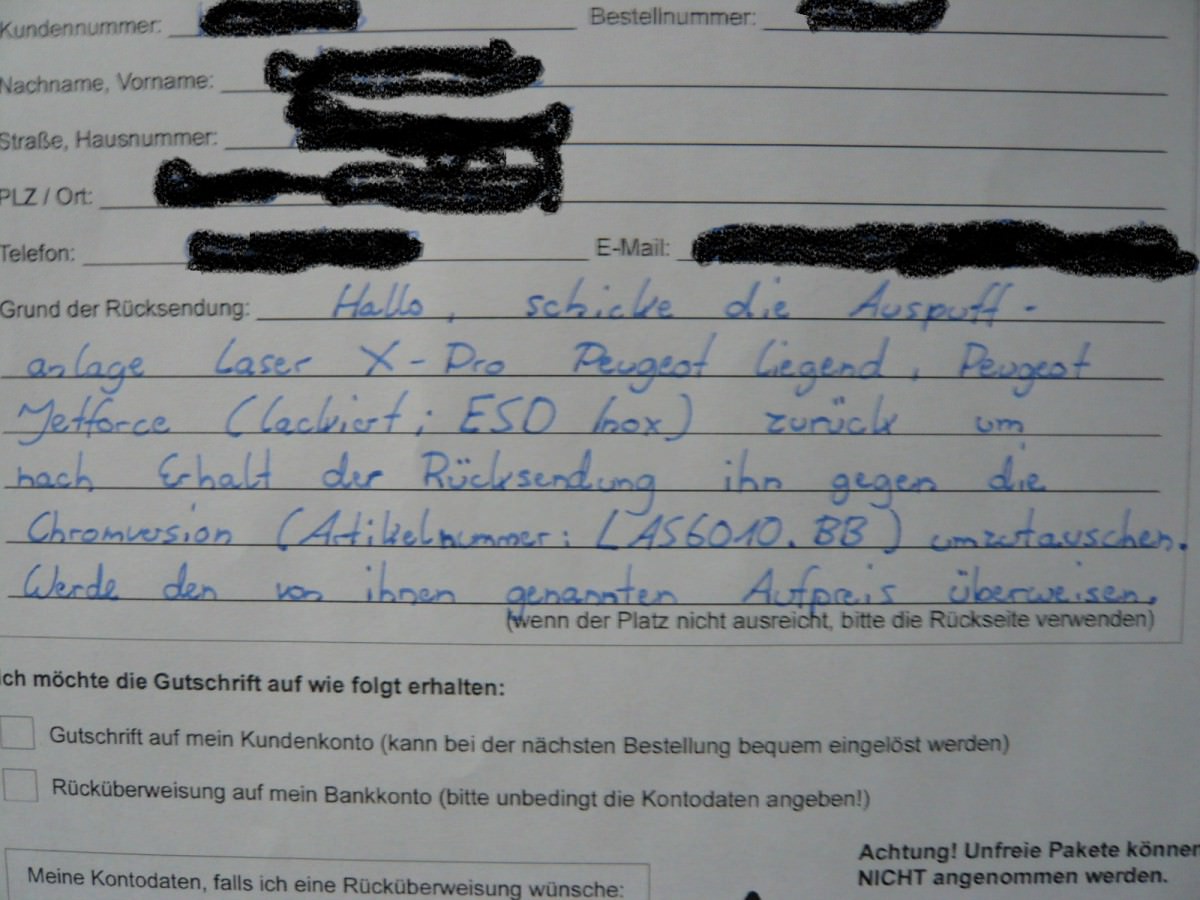 Kundennummer: Bestellnummer:
Nachname, Vorname:
Straße, Hausnummer:
PLZ / Ort:
Telefon: E-Mail:
Grund der Rücksendung: Hallo, schicke die Auspuff-
anlage Laser X-Pro Peugeot liegend, Peugeot
Jetforce (lackiert; ESD Inox) zurück um
nach Erhalt der Rücksendung ihn gegen die
Chromversion (Artikelnummer: LAS6010.BB) umzutauschen.
Werde den von ihnen genannten Aufpreis überweisen.
(wenn der Platz nicht ausreicht, bitte die Rückseite verwenden)
ich möchte die Gutschrift auf wie folgt erhalten:
Gutschrift auf mein Kundenkonto (kann bei der nächsten Bestellung bequem eingelöst werden)
Rücküberweisung auf mein Bankkonto (bitte unbedingt die Kontodaten angeben!)
Achtung! Unfreie Pakete können
NICHT angenommen werden.
Meine Kontodaten, falls ich eine Rücküberweisung wünsche: